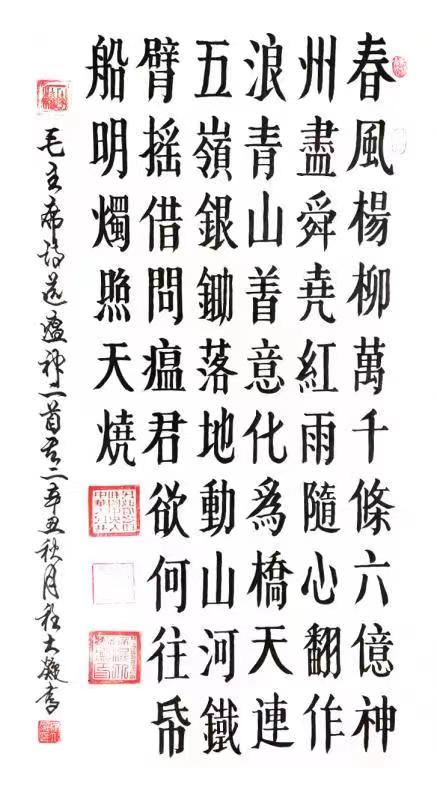 春風楊柳萬千條六億神
州盡舜堯紅雨隨心翻作
浪青山着意化為橋天連
五嶺銀鋤落地動山河鐵
臂摇借問瘟君欲何往帋
船明燭照天燒
毛主席詩送瘟神一首其二辛丑秋月程大書